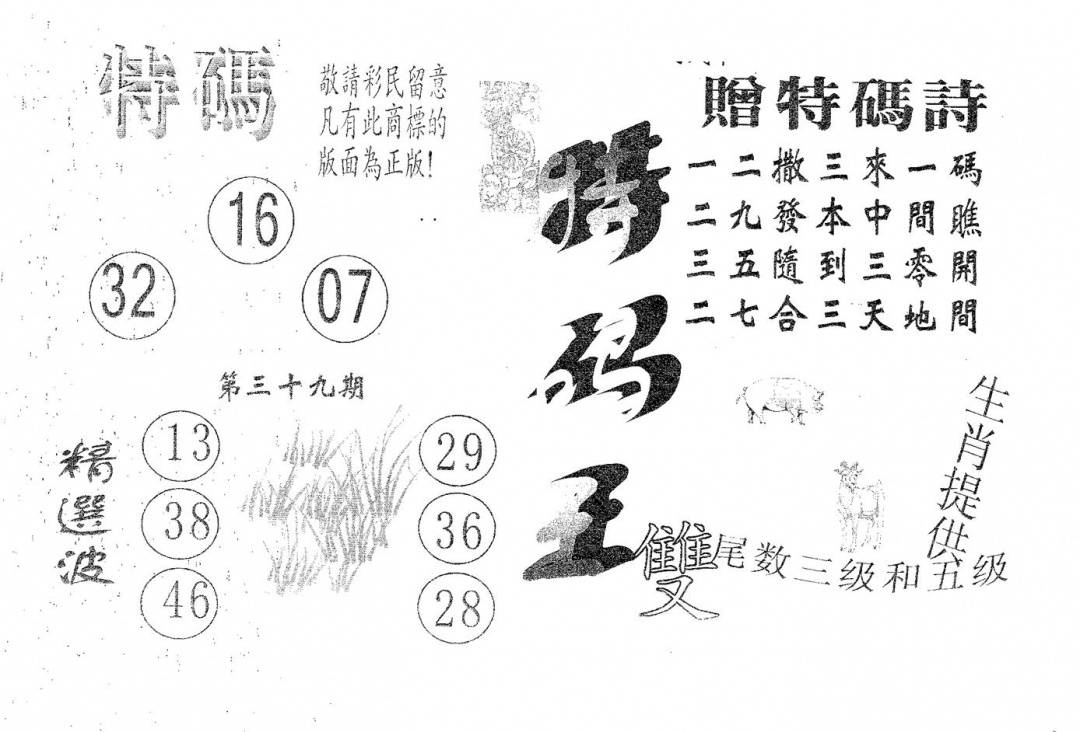 特碼
敬請彩民留意
凡有此商標的
版面為正版!
16
32
07
第三十九期
精選波
13
38
46
29
36
28
特码王
贈特碼詩
一二撒三來一碼
二九發本中間瞧
三五隨到三零開
二七合三天地間
生肖提供
雙尾数三级和五级